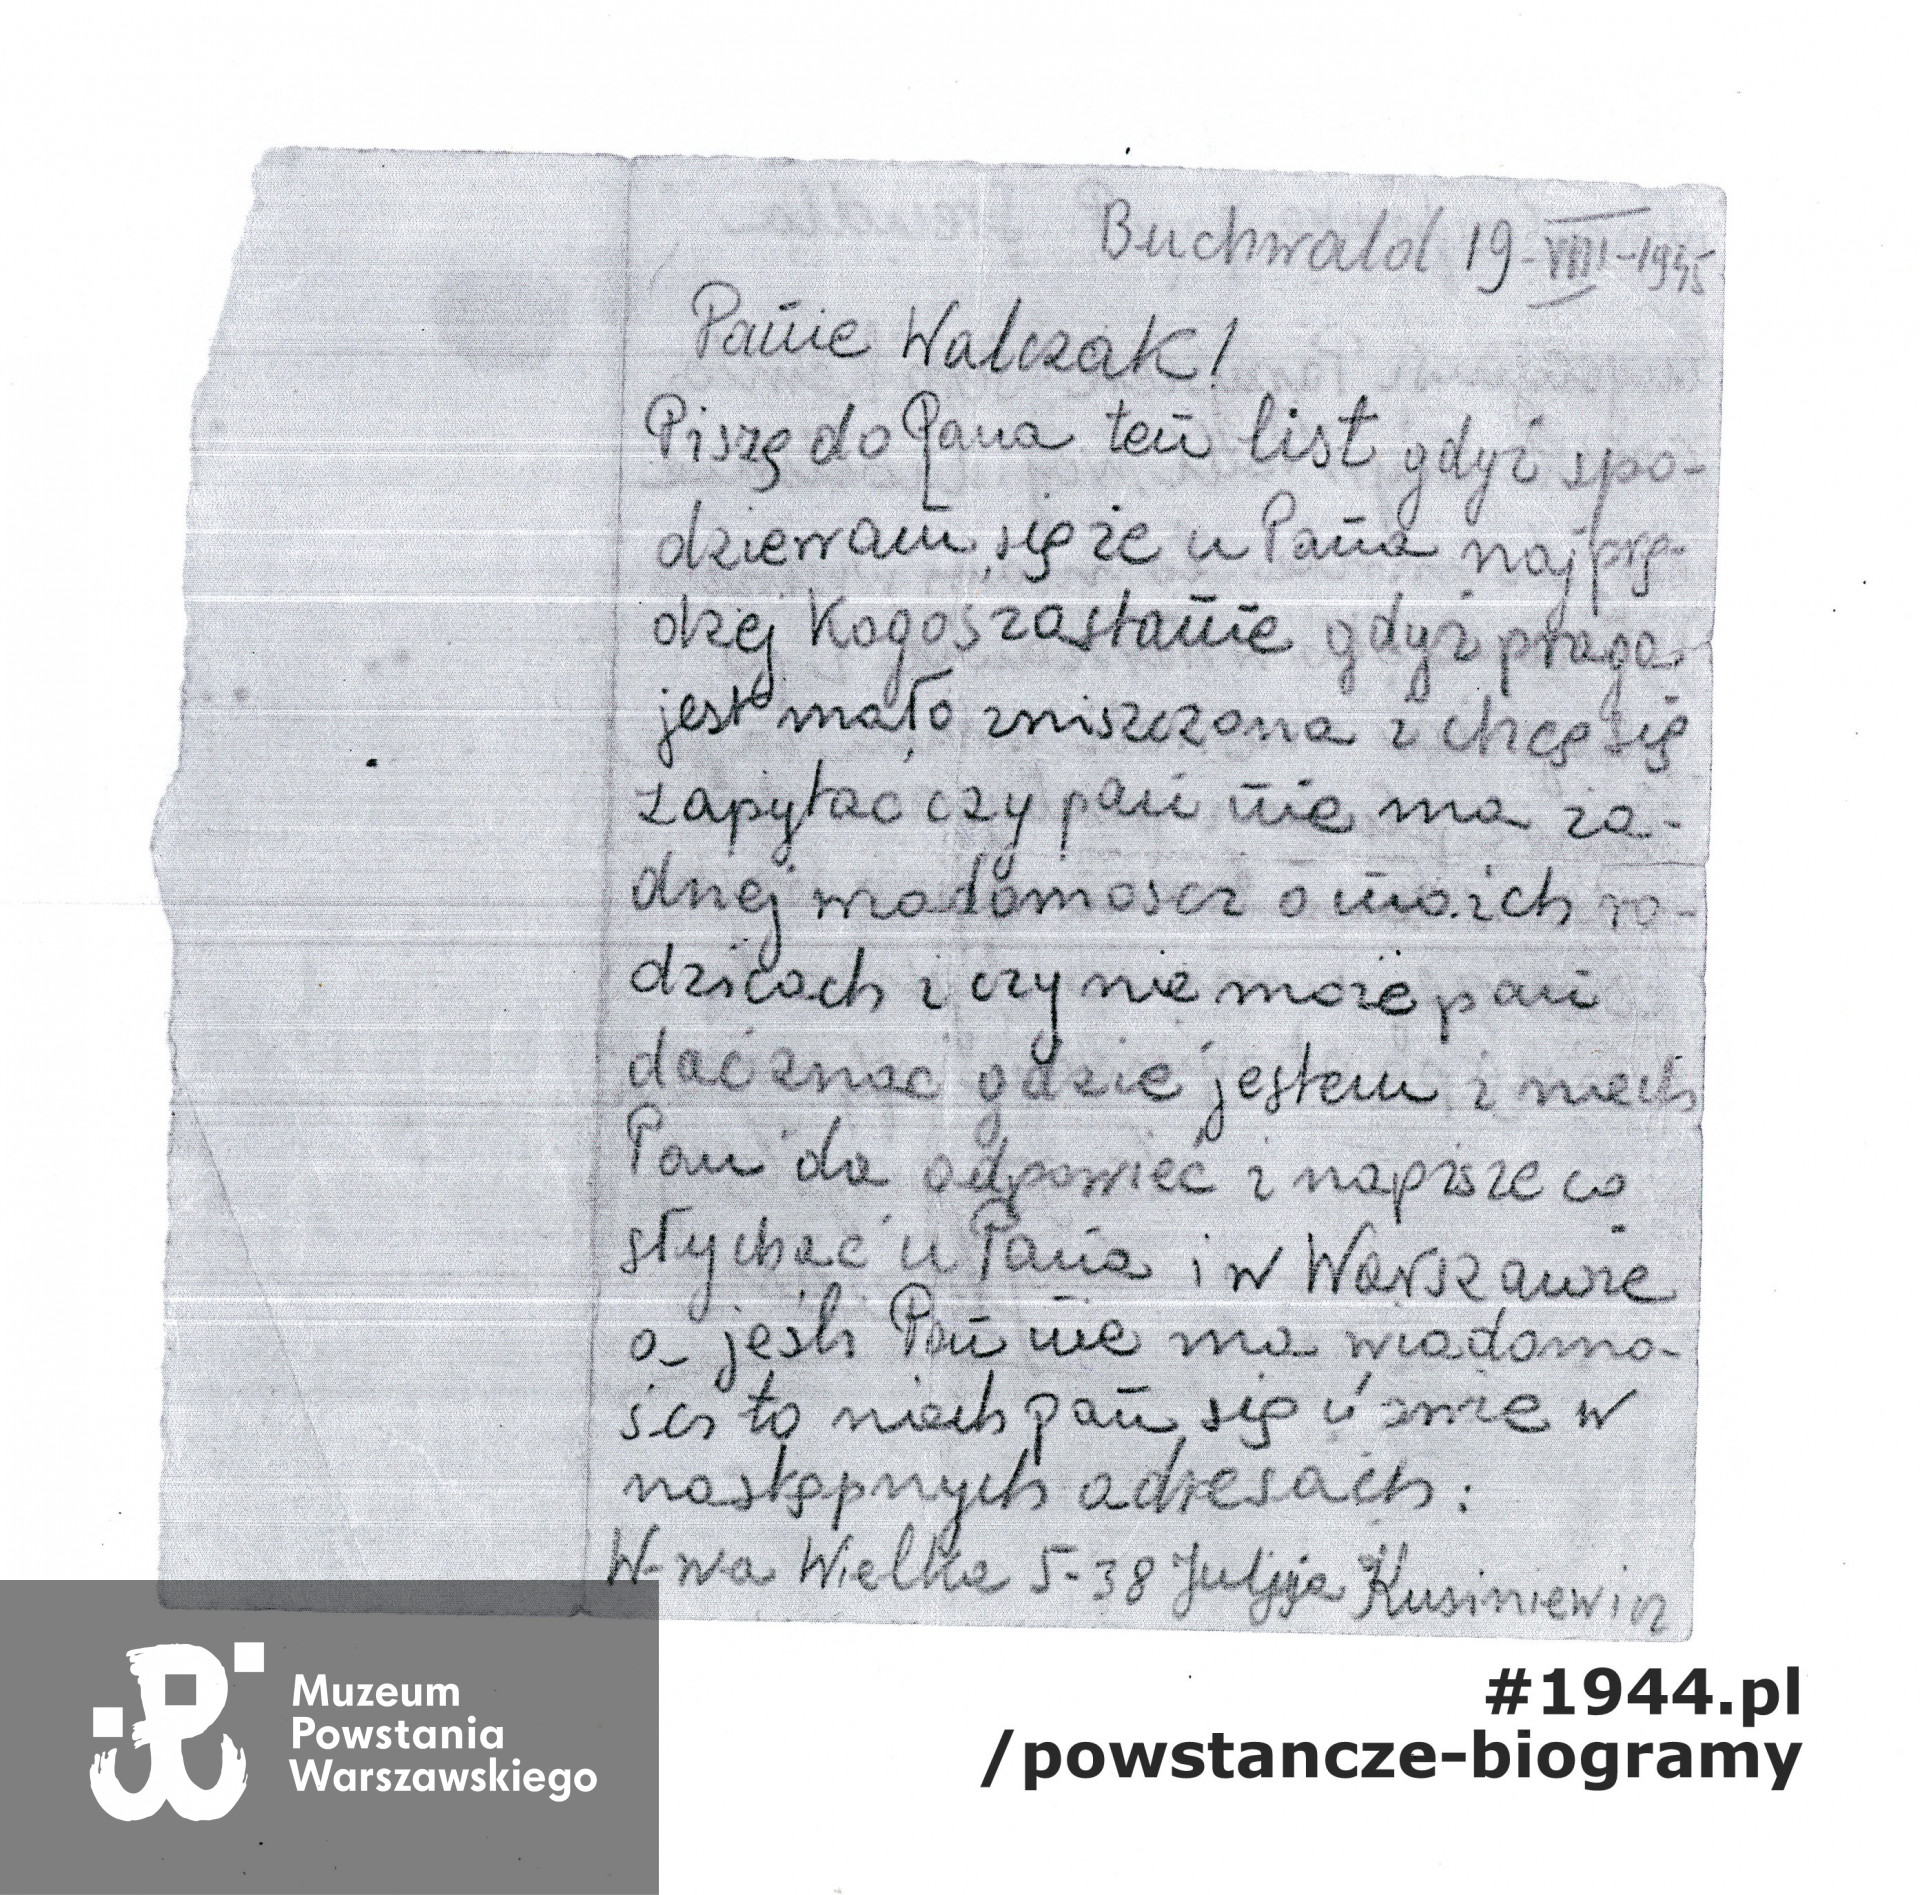 Buchwald 19-VIII-1945
Panie Walczak!
Piszę do Pana ten list gdyż spo-
dziewam się że u Pana najprę-
dzej kogoś zastanie gdyż praga
jest mało zniszczona i chcę się
zapytać czy pan nie ma ża-
dnej wiadomości o moich ro-
dzicach i czy nie może pan
dać znac gdzie jestem i niech
Pan da odpowieć i napisze co
słychać u Pana i w Warszawie
a jeśli Pan nie ma wiadomo-
ści to niech pan się u w
następnych adresach:
W-wa Wielka 5-38 Juljja Kusiniewicz
Muzeum
Powstania
Warszawskiego
#1944.pl
/powstancze-biogramy